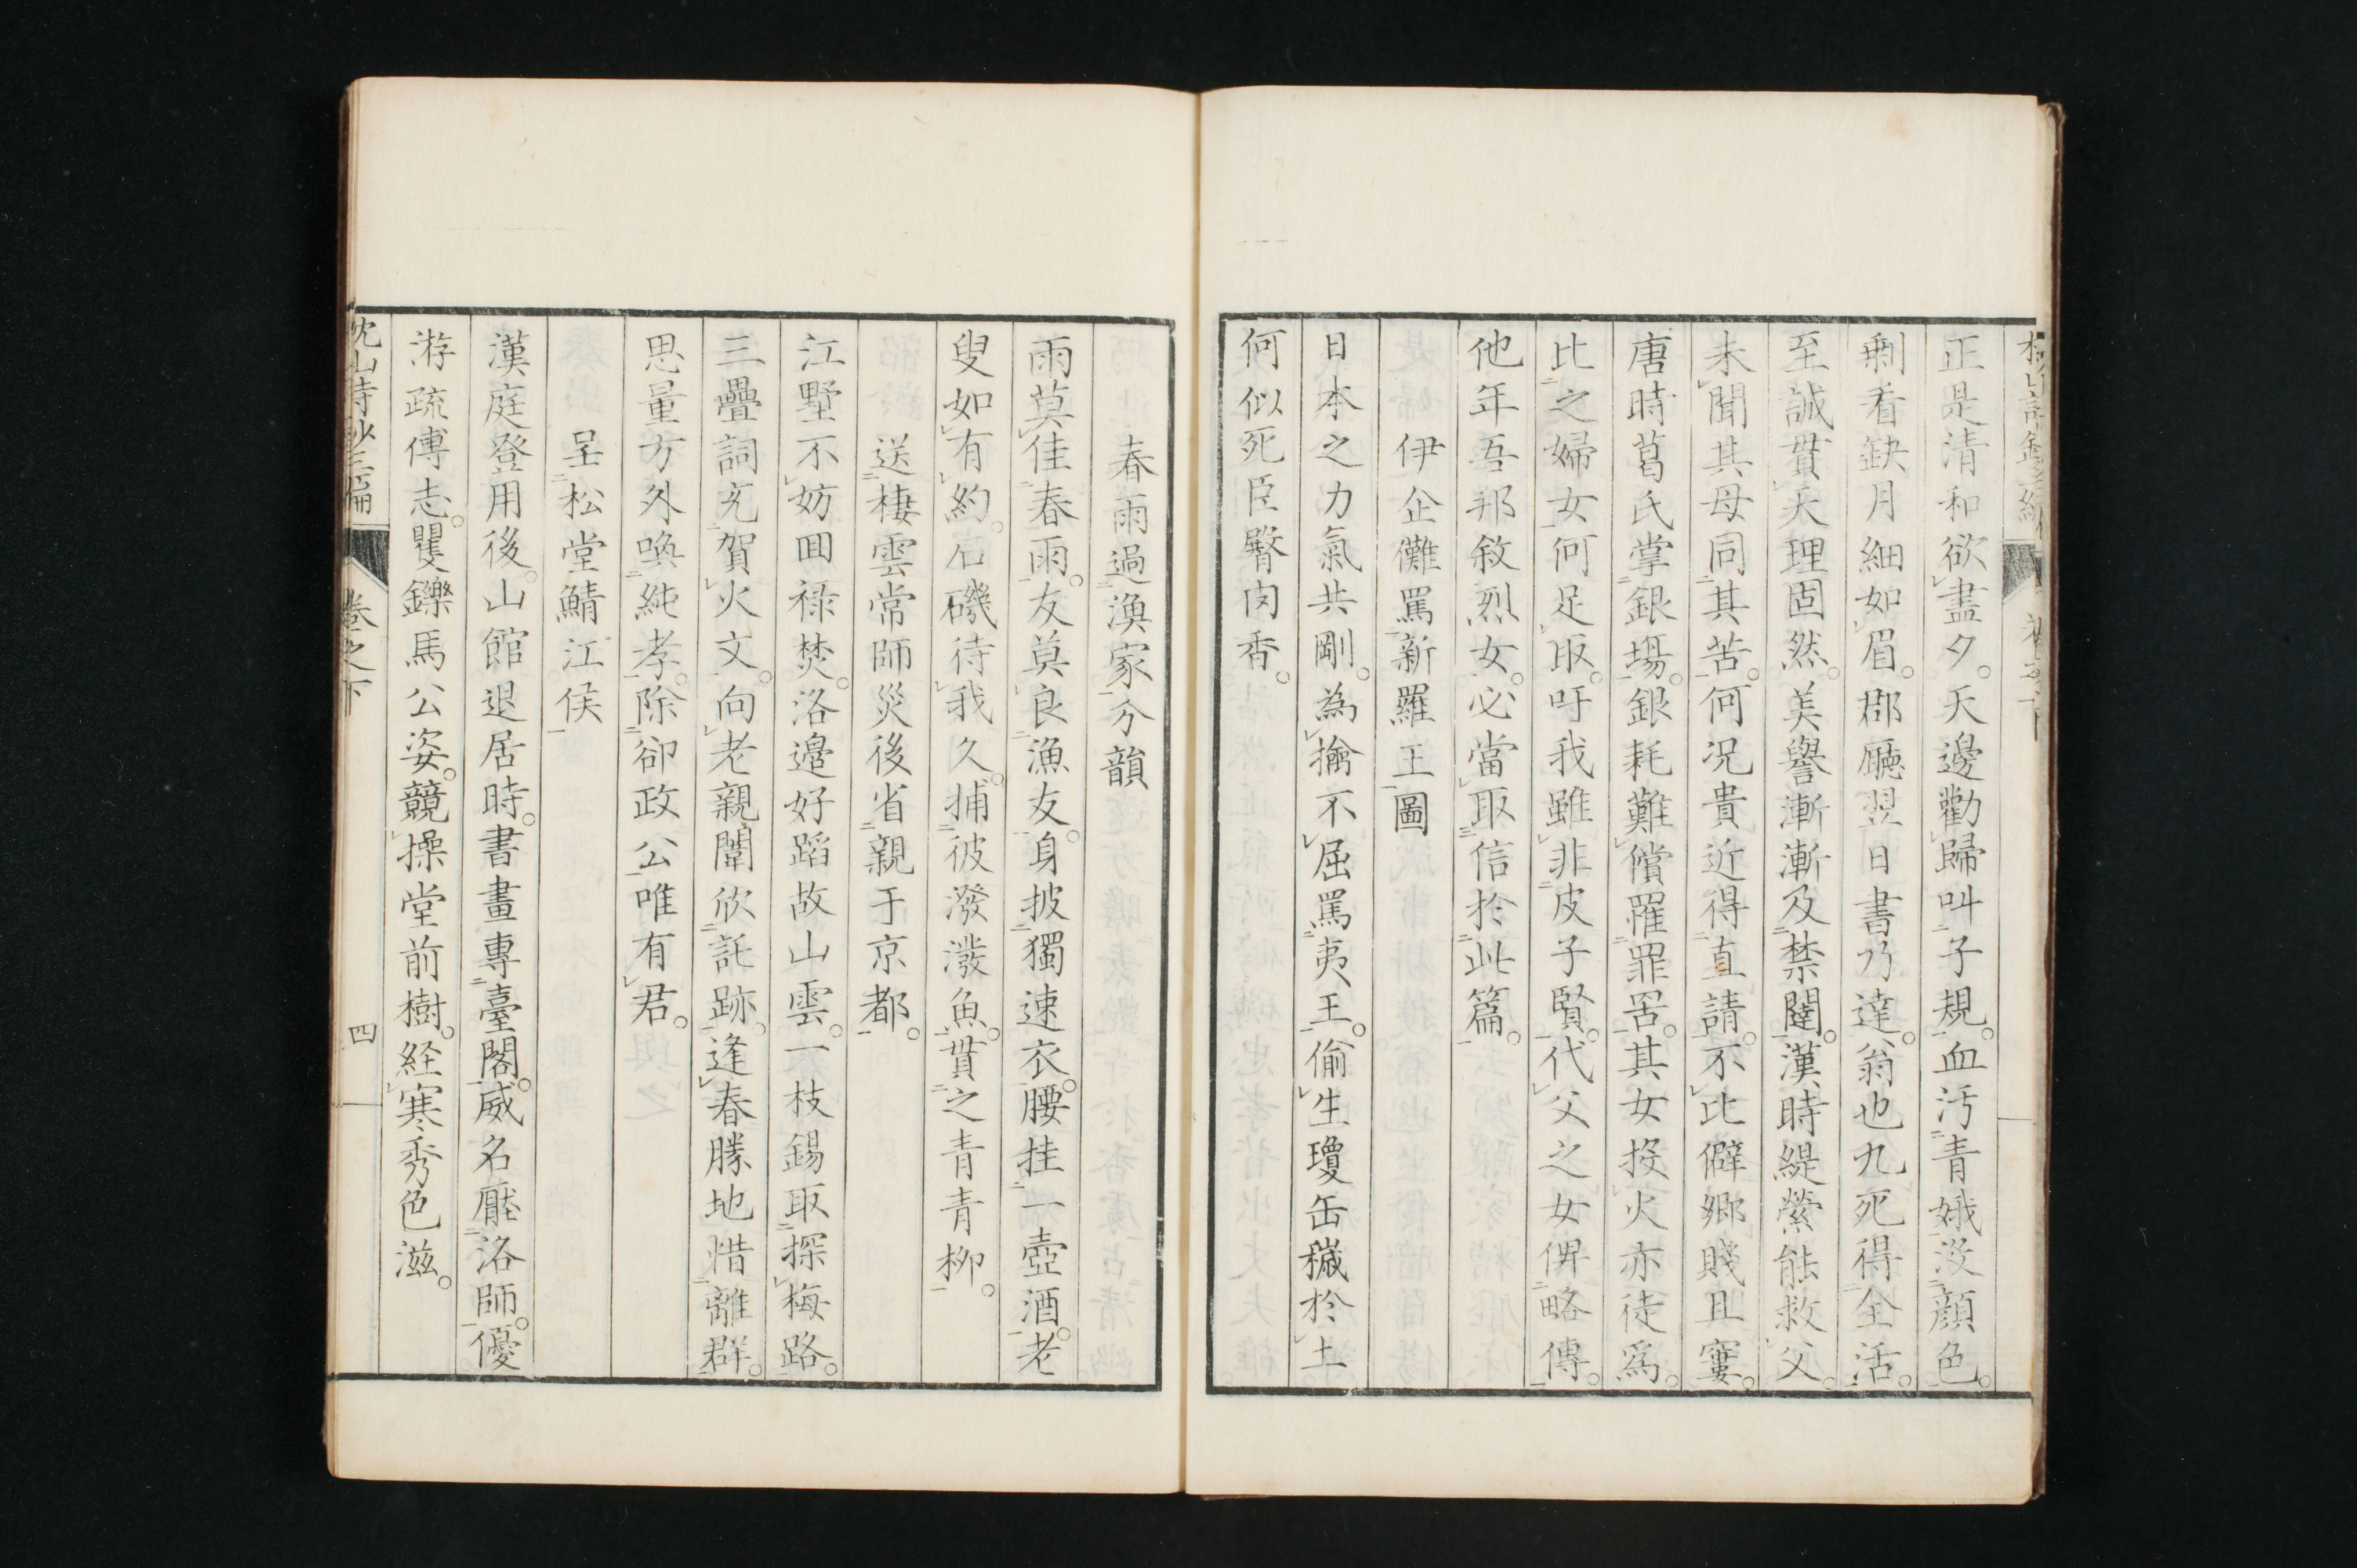 正是清和欲盡夕。天邊勸歸叫子規。血汚青娥没顔色。
剩看缺月細如眉。郡廳翌日書乃達。翁也九死得全活。
至誠貫天理固然。美譽漸漸及禁闥。漢時緹縈能救父。
未聞其母同其苦。何况貴近得直請。不比僻鄉賤且窶。
唐時葛氏掌銀場。銀耗難償罹罪罟。其女投火亦徒爲。
比之婦女何足取。吁我雖非皮子賢。代父之女俾略傳。
他年吾邦敘烈女。必當取信於此篇。
伊企儺罵新羅王圖
日本之力氣共剛。為擒不屈罵夷王。偷生瓊缶穢於土
何似死臣臀肉香。
春雨過漁家分韻
雨莫佳春雨。友莫良漁友。身披獨速衣。腰挂一壺酒。老
叟如有約。石磯待我久。捕彼潑潑魚。貫之青青柳。
送棲雲常師災後省親于京都。
江墅不妨回禄焚。洛邊好蹈故山雲。一枝錫取探梅路。
三疊詞充賀火文。向老親闈欣託跡。逢春勝地惜離群。
思量方外喚純孝。除卻政公唯有君。
呈松堂鯖江侯
漢庭登用後。山館退居時。書畫專臺閣。威名壓洛師。優
游疏傅志。矍鑠馬公姿。競操堂前樹。経寒秀色滋。
枕山詩鈔三編
卷之下
四